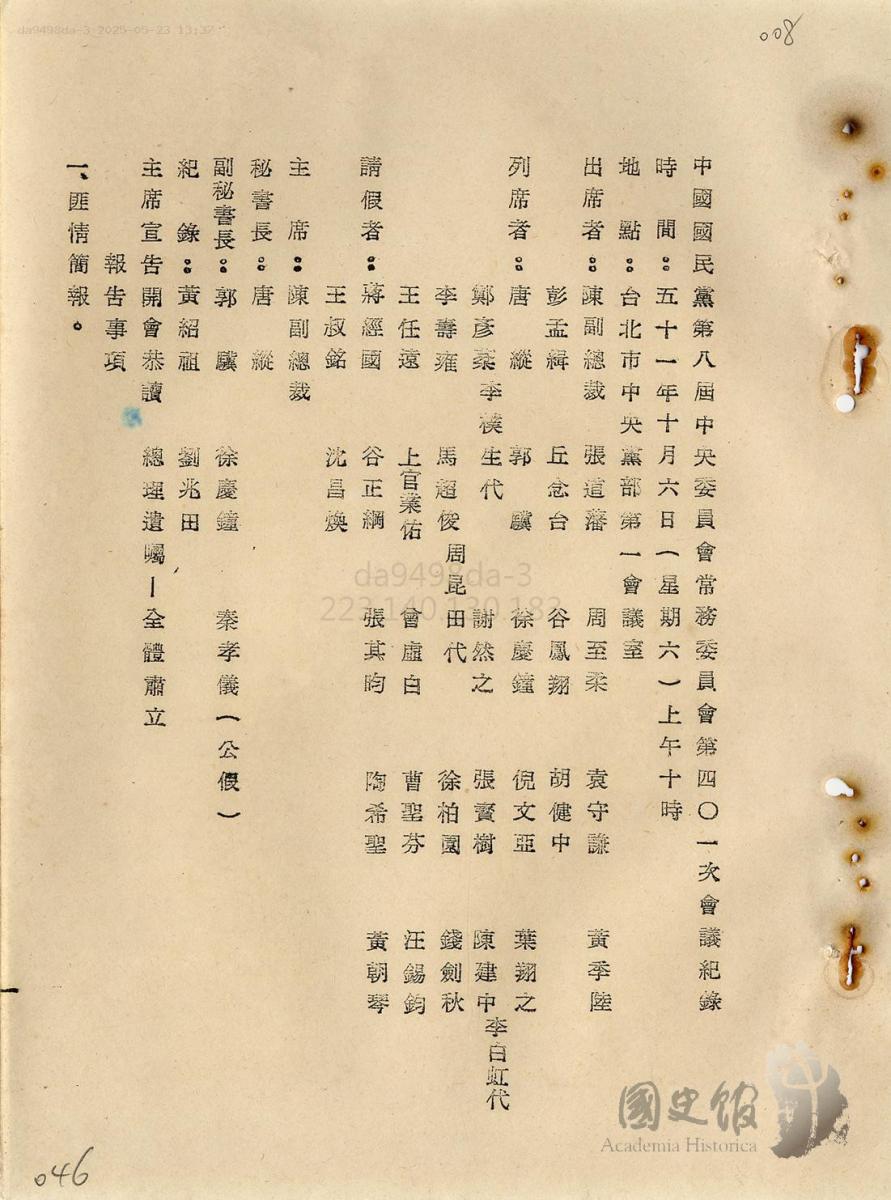 da9498da-3 2025-05-23 13:37
008
中國國民黨第八屆中央委員會常務委員會第四〇一次會議紀錄
時間：五十一年十月六日（星期六）上午十時
地點：台北市中央黨部第一會議室
出席者：陳副總裁 張道藩 周至柔 袁守謙 黃季陸
彭孟緝 丘念台 谷鳳翔 胡健中
列席者：唐縱 郭驥 徐慶鐘 倪文亞 葉翔之
鄭彥棻李樸生代 謝然之 張寶樹 陳建中李白虹代
李壽雍 馬超俊周昆田代 徐柏園 錢劍秋
王任遠 上官業佑 曾虛白 曹聖芬 汪錫鈞
請假者：蔣經國 谷正綱 張其昀 陶希聖 黃朝琴
王叔銘 沈昌煥
主席：陳副總裁
秘書長：唐縱
副秘書長：郭驥 徐慶鐘 秦孝儀（公假）
紀錄：黃紹祖 劉兆田
主席宣告開會恭讀 總理遺囑—全體肅立
報告事項
一、匪情簡報。
da9498da-3
223.140.130.183
國史館
Academia Historica
046